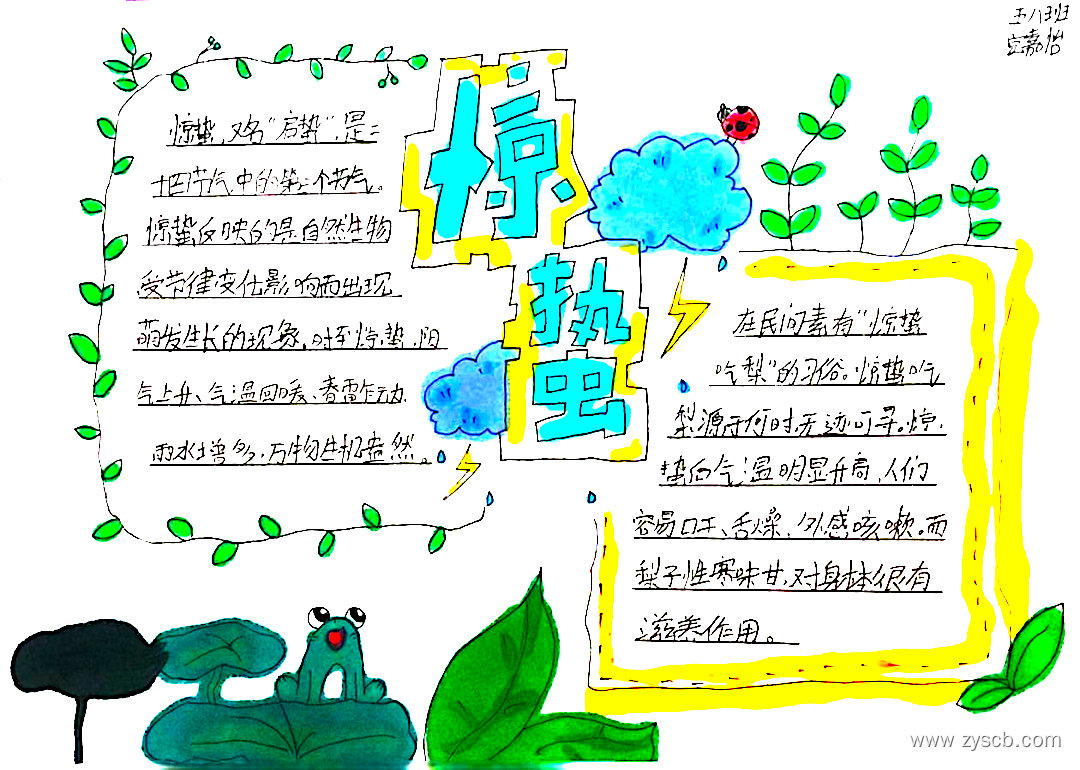 五八班
嘉怡
惊蛰
惊蛰,又名“启蛰”,是二
十四节气中的第三个节气。
惊蛰反映的是自然生物
受节律变化影响而出现
萌发生长的现象。时至惊蛰,阳
气上升、气温回暖、春雷乍动、
雨水增多,万物生机盎然。
在民间素有“惊蛰
吃梨”的习俗。惊蛰吃
梨源于何时,无迹可寻,惊
蛰后气温明显升高,人们
容易口干、舌燥,外感咳嗽。而
梨子性寒味甘,对身体很有
滋养作用。
www zyscb.com